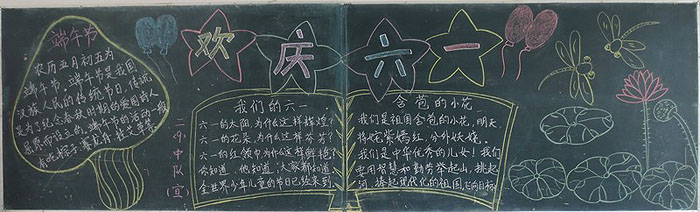 端午节
农历五月初五为
端午节。端午节是我国
汉族人民的传统节日，传说
是为了纪念春秋时期的爱国诗人
屈原而设立的。端午节的活动一般
有吃粽子、赛龙舟、挂艾草等。
欢庆六一
二(5)中队(宣)
我们的六一
六一的太阳为什么这样辉煌？
六一的花朵为什么这样芬芳？
六一的红领巾为什么这样鲜艳？
你知道，他知道，大家都知道，
全世界少年儿童的节日已经来到
含苞的小花
我们是祖国含苞的小花，明天，
将姹紫嫣红，分外妖娆。
我们是中华优秀的儿女！我们
要用智慧和勤劳举起山，挑起
河，捧起现代化的祖国